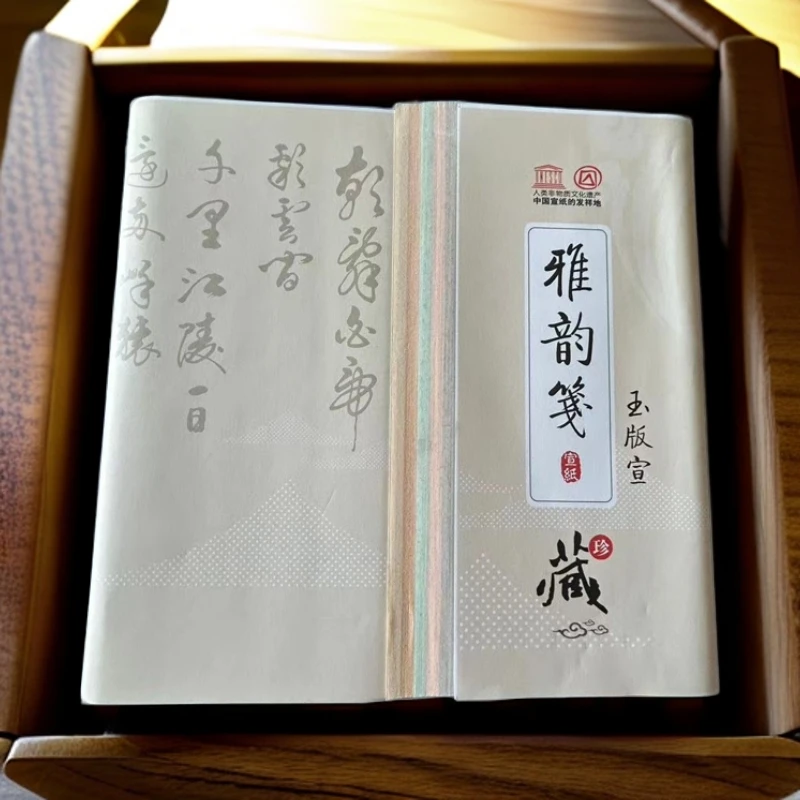 人类非物质文化遗产
中国宣纸的发祥地
雅韵笺
宣紙
玉版宣
珍
藏
朝辭白帝
彩雲間
千里江陵一日
還兩岸猿